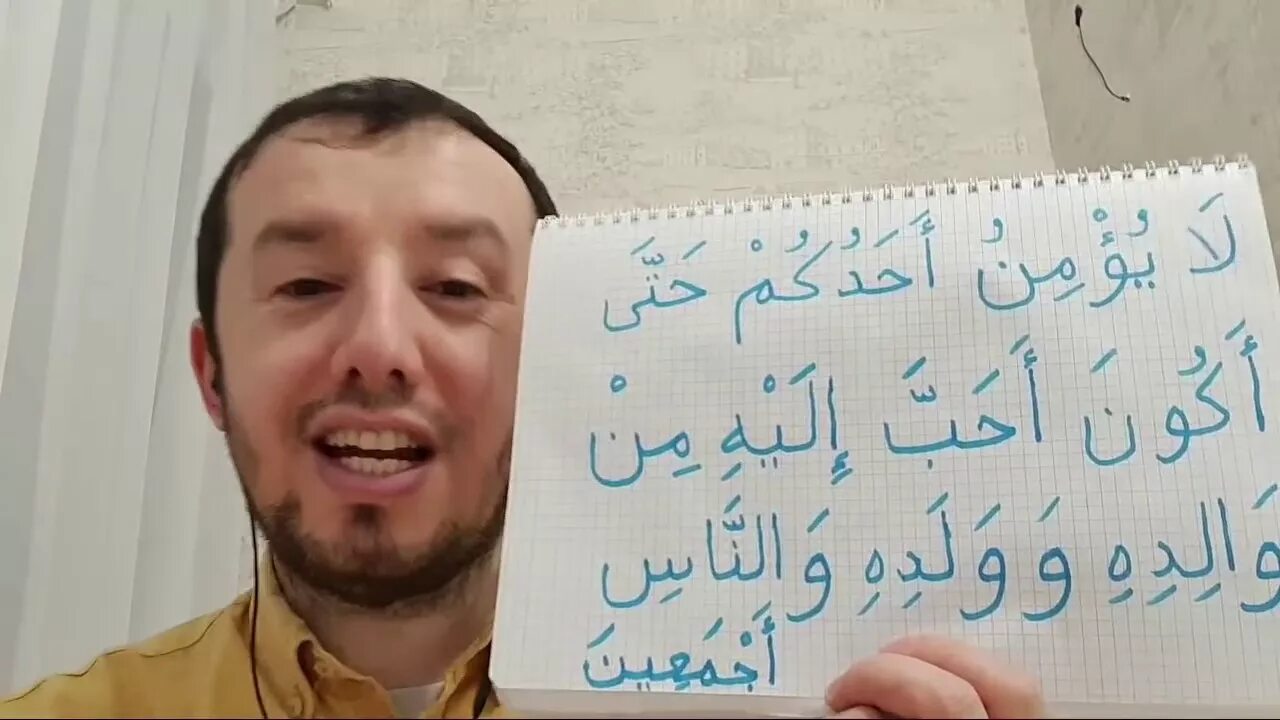 لَا يُؤْمِنُ أَحَدُكُمْ حَتَّى
أَكُونَ أَحَبَّ إِلَيْهِ مِنْ
وَالِدِهِ وَ وَلَدِهِ وَ النَّاسِ
أَجْمَعِينَ